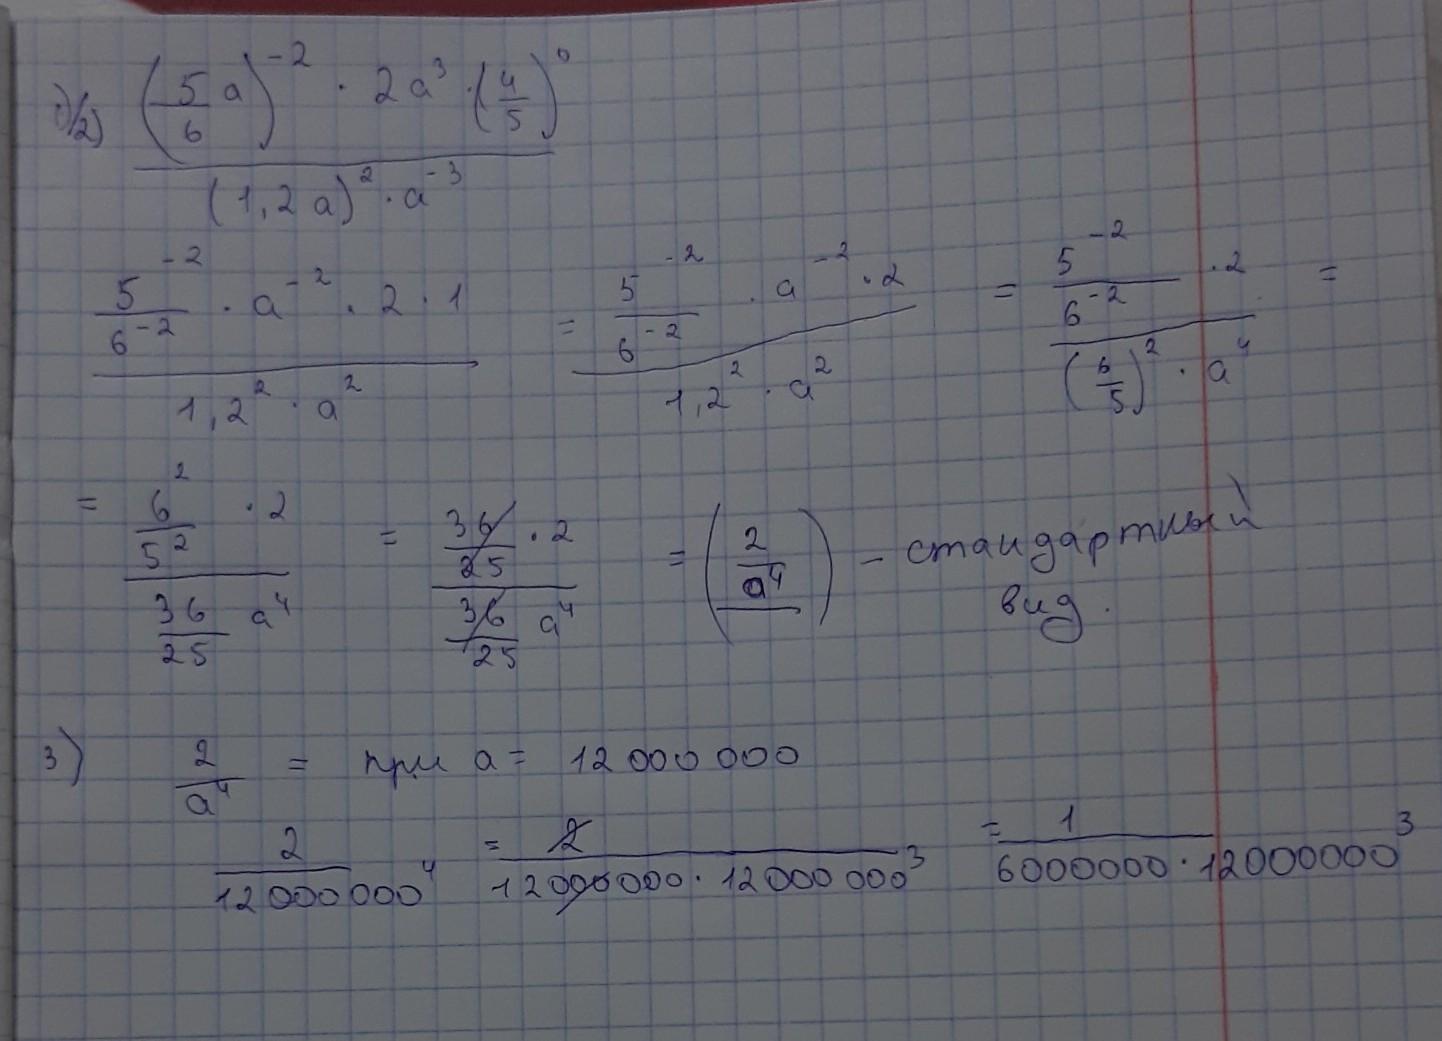 1)/2) ((5/6)a)^-2 · 2a^3 · (4/5)^0 / ((1,2a)^2 · a^-3)
(5^-2/6^-2 · a^-2 · 2 · 1) / (1,2^2 · a^2) = (5^-2/6^-2 · a^-2 · 2) / (1,2^2 · a^2) = (5^-2/6^-2 · 2) / ((6/5)^2 · a^4) =
= (6^2/5^2 · 2) / (36/25 a^4) = (36/25 · 2) / (36/25 a^4) = (2/a^4) – стандартный
вид.
3) 2/a^4 = при a = 12 000 000
2/12 000 000^4 = 2/(12000000 · 12000 000^3) = 1/(6000000 · 12000000^3)